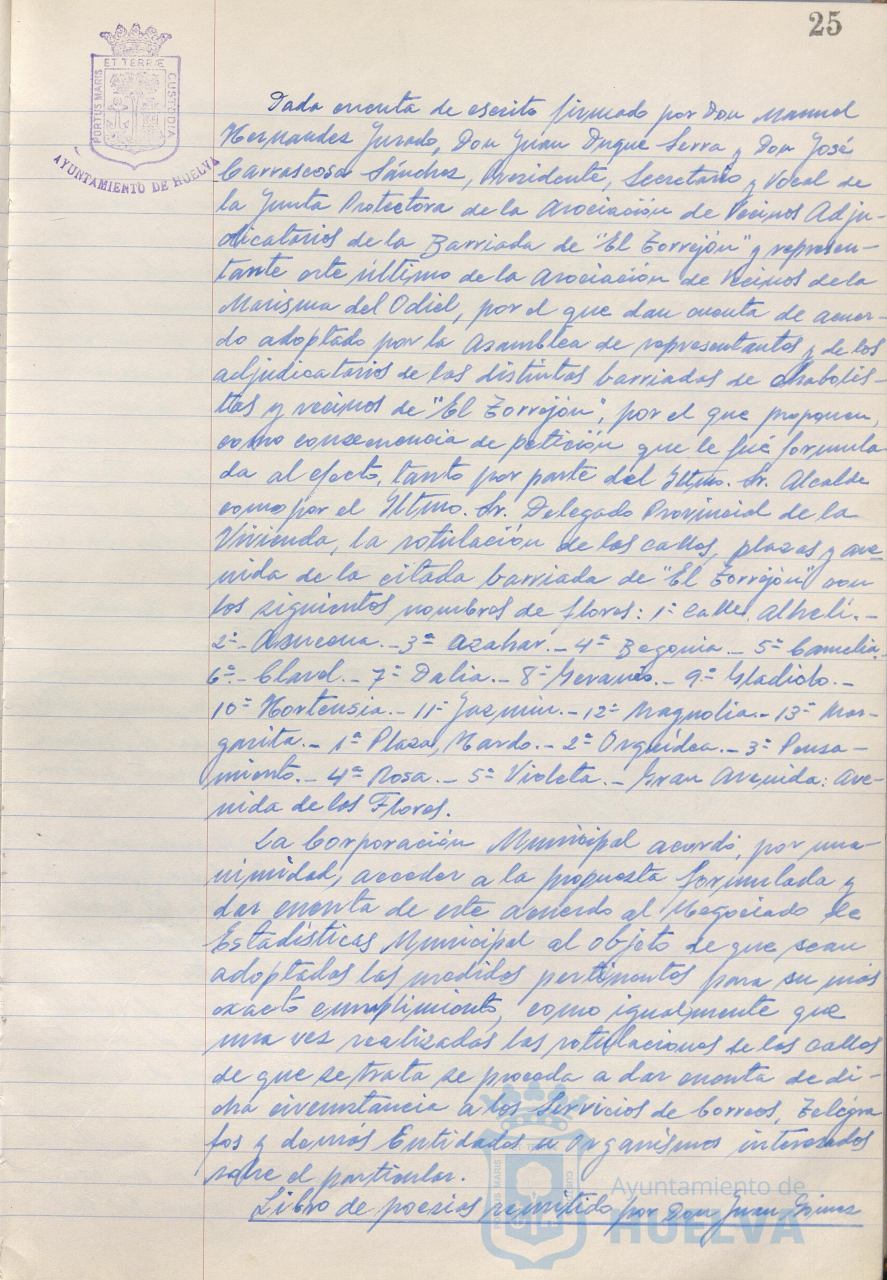 25
ET TERRÆ
PORTUS MARIS
CUSTODIA
AYUNTAMIENTO DE HUELVA
Dada cuenta de escrito firmado por Don Manuel
Hernandez Jurado, Don Juan Duque Serra y Don José
Carrascosa Sánchez, Presidente, Secretario y Vocal de
la Junta Protectora de la Asociación de Vecinos Adju-
dicatarios de la Barriada de "El Torrejón" y represen-
tante este último de la Asociación de Vecinos de la
Marisma del Odiel, por el que dan cuenta de acuer-
do adoptado por la Asamblea de representantes y de los
adjudicatarios de las distintas barriadas de chabolis-
tas y vecinos de "El Torrejón", por el que proponen,
como consecuencia de petición que le fué formula-
da al efecto, tanto por parte del Iltmo. Sr. Alcalde
como por el Iltmo. Sr. Delegado Provincial de la
Vivienda, la rotulación de las calles, plazas y ave-
nida de la citada barriada de "El Torrejón" con
los siguientes nombres de flores: 1ª Calle, Alhelí.-
2ª- Azucena.- 3ª Azahar.- 4ª Begonia.- 5ª Camelia.-
6ª- Clavel.- 7ª Dalia.- 8ª Geranio.- 9ª Gladiolo.-
10ª Hortensia.- 11ª Jazmín.- 12ª Magnolia.- 13ª Mar-
garita.- 1ª Plaza, Nardo.- 2ª Orquídea.- 3ª Pensa-
miento.- 4ª Rosa.- 5ª Violeta.- Gran Avenida: Ave-
nida de las Flores.
La Corporación Municipal acordó, por una-
nimidad, acceder a la propuesta formulada y
dar cuenta de este acuerdo al Negociado de
Estadísticas Municipal al objeto de que sean
adoptadas las medidas pertinentes para su más
exacto cumplimiento, como igualmente que
una vez realizadas las rotulaciones de las calles
de que se trata se proceda a dar cuenta de di-
cha circunstancia a los Servicios de Correos, Telégra-
fos y demás Entidades u organismos interesados
sobre el particular.
Libro de poesias remitido por Don Juan Gómez
Ayuntamiento de
HUELVA